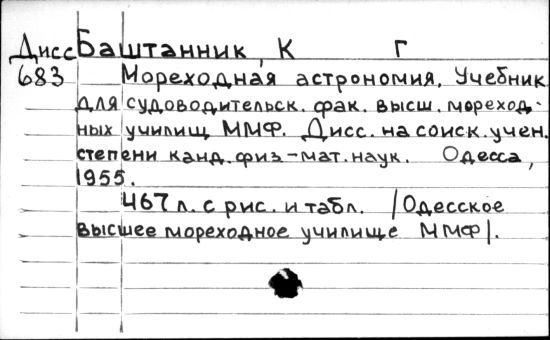 Дисс Баштанник, К Г
683 Мореходная астрономия. Учебник
для судоводительск. фак. высш. мореход-
ных училищ ММФ. Дисс. на соиск. учен.
степени канд. физ-мат. наук. Одесса,
1955.
467 л. с рис. и табл. /Одесское
высшее мореходное училище ММФ/.